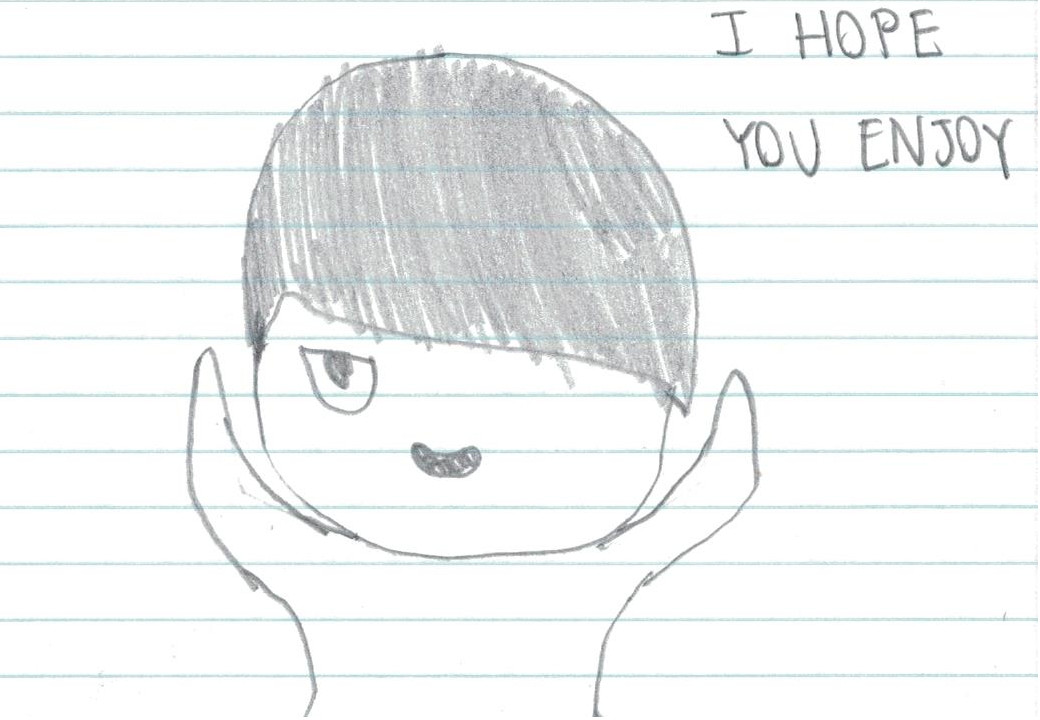 I HOPE
YOU ENJOY